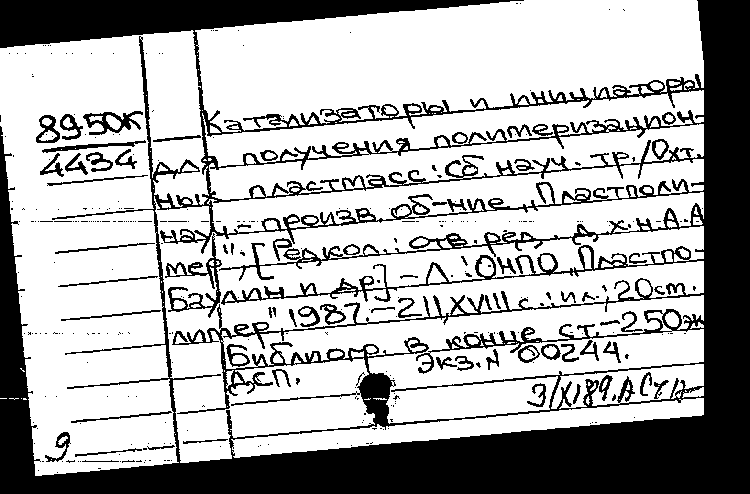 8950к
4434
Катализаторы и инициаторы
для получения полимеризацион-
ных пластмасс: Сб. науч. тр./Охт.
науч.-произв. об-ние „Пластполи-
мер"; [Редкол.: отв. ред. д. х. н. А. А
Баулин и др.] - Л.: ОНПО „Пластпо-
лимер", 1987. - 211, XVIII с.: ил.; 20 см.
Библиогр. в конце ст. - 250 эк
ДСП. Экз. N 00244.
3/XI89.
9